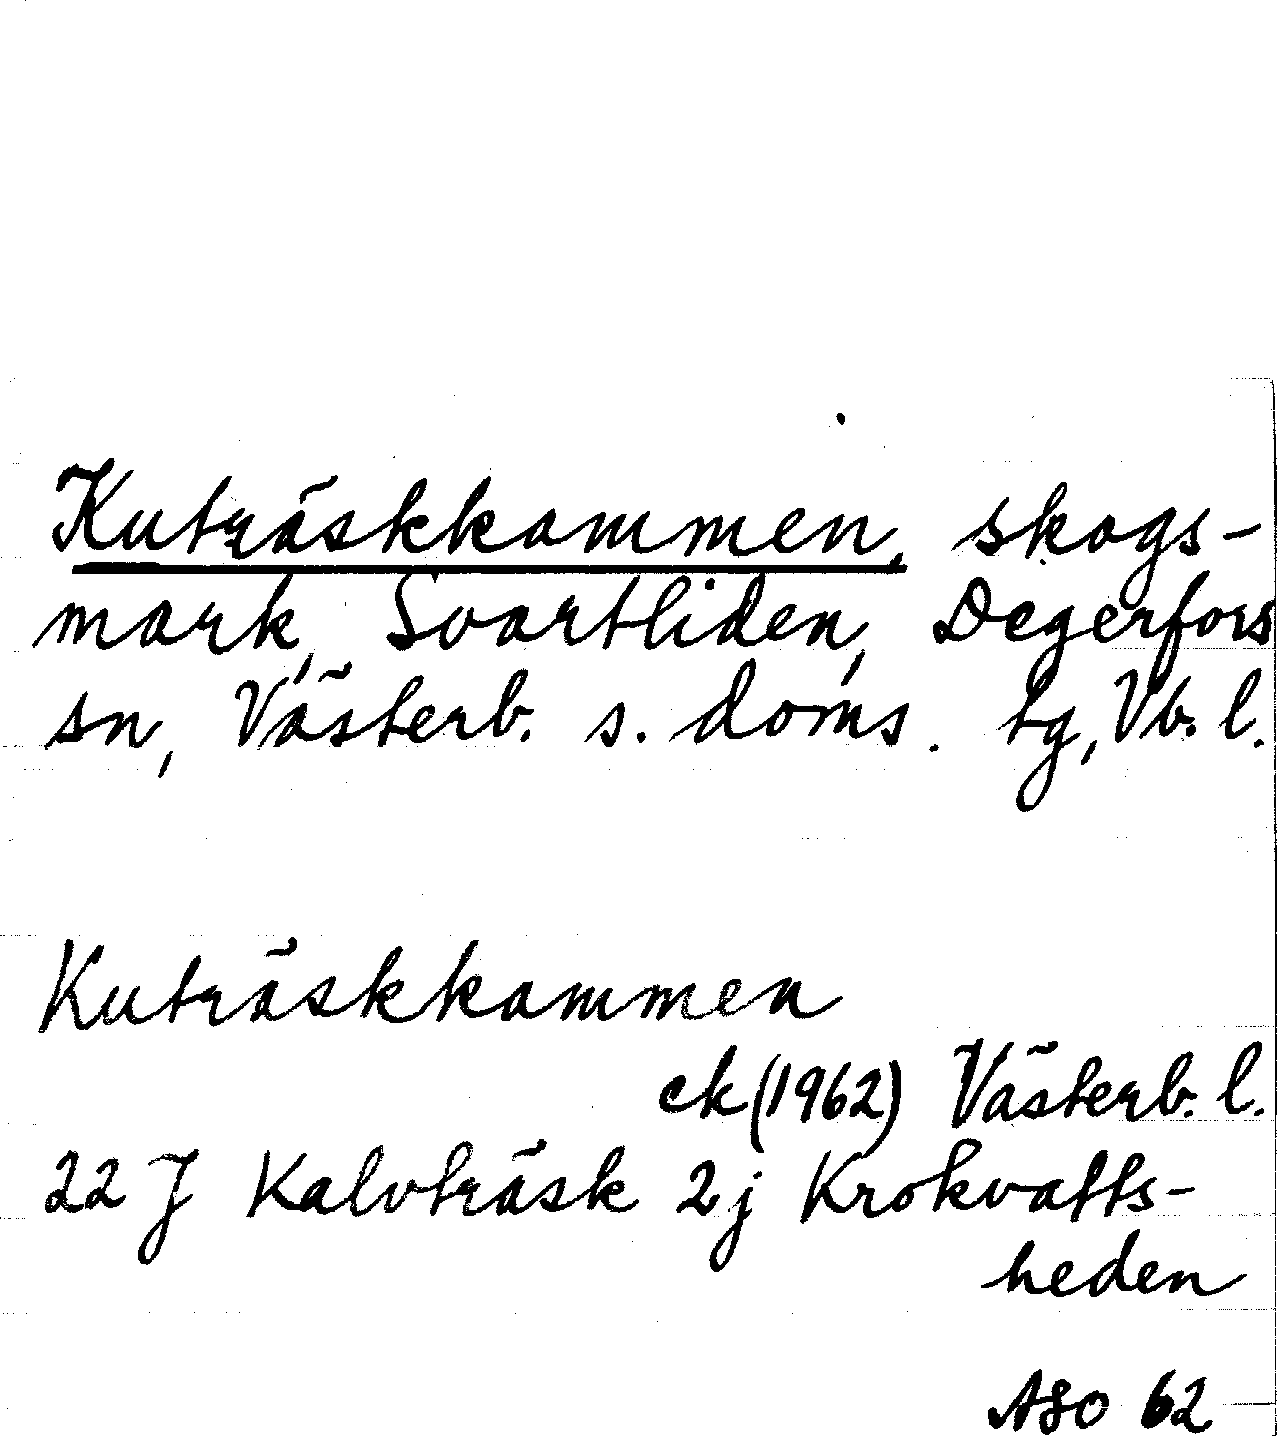 Kuträskkammen, skogs-
mark, Svartliden, Degerfors
sn, Västerb. s. doms. tg, Vb. l.
Kuträskkammen
ek (1962) Västerb. l.
22 J Kalvträsk 2j Krokvatts-
heden
ASO 62